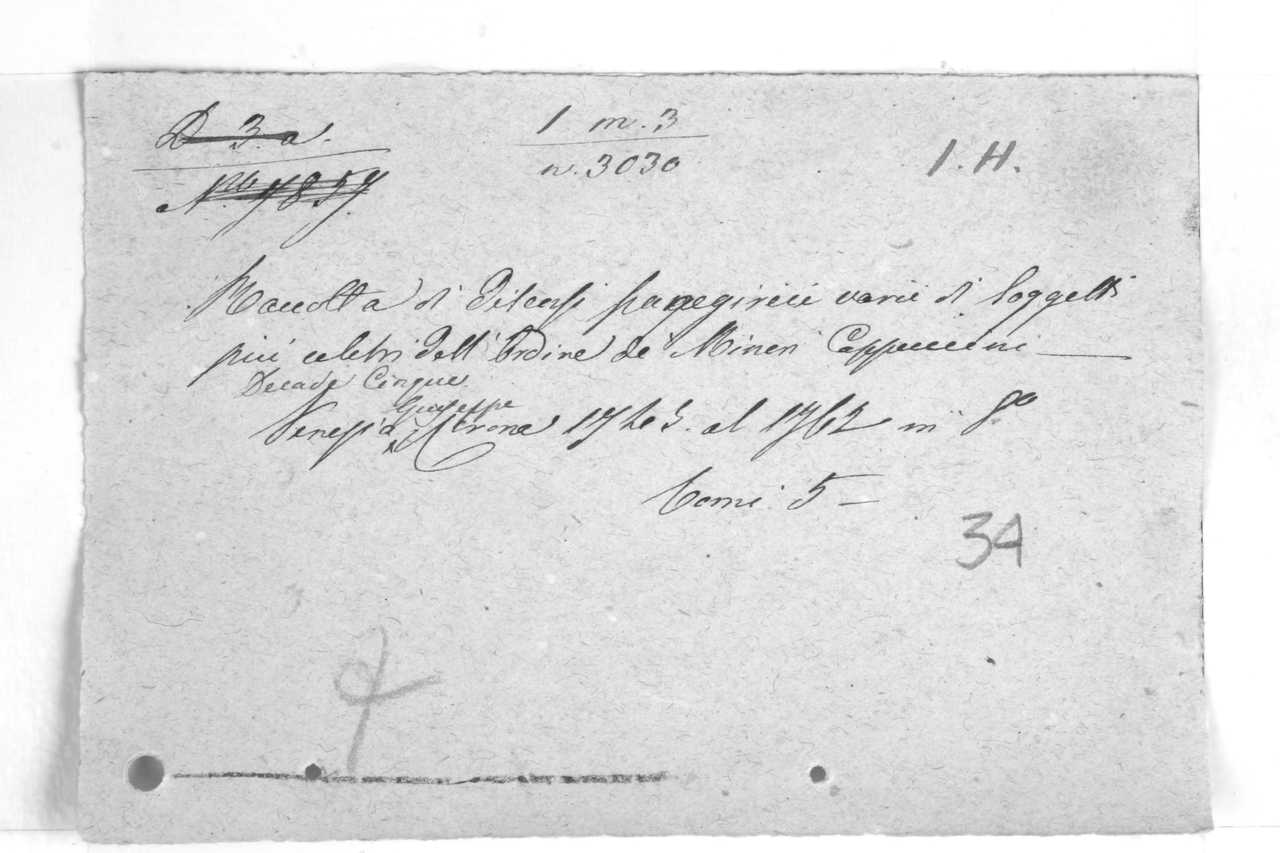 D 3. a.
N.ro 7857.
1 m. 3
n. 3030
1. H.
Raccolta di Discorsi panegirici varii di Soggetti
più celebri dell'Ordine de' Minori Cappuccini
Decade Cinque
Giuseppe
Venezia Corona al 1762 in 8o
Tomi 5
34